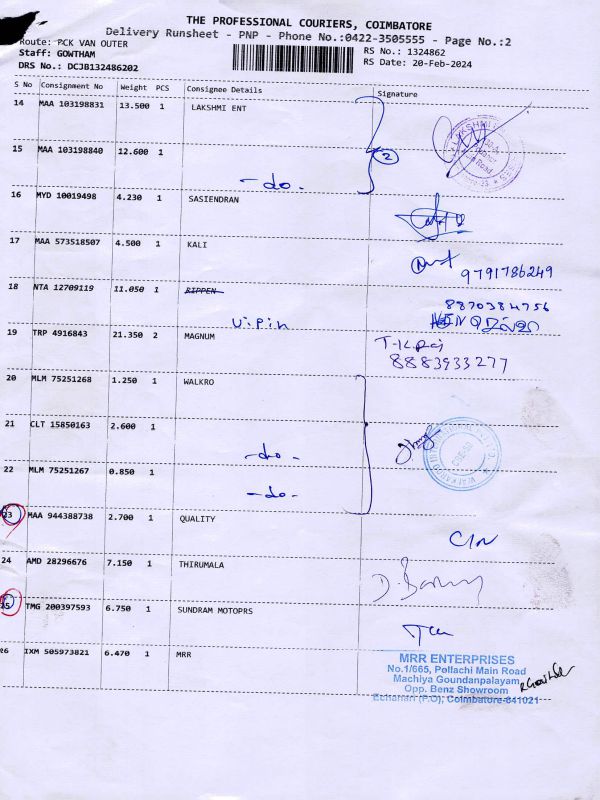 THE PROFESSIONAL COURIERS, COIMBATORE
Delivery Runsheet - PNP - Phone No.:0422-3505555 - Page No.:2
Route: PCK VAN OUTER
RS No.: 1324862
Staff: GOWTHAM
RS Date: 20-Feb-2024
DRS No.: DCJB132486202
S No Consignment No Weight PCS Consignee Details Signature
14 MAA 103198831 13.500 1 LAKSHMI ENT
15 MAA 103198840 12.600 1
2
-do-
16 MYD 10019498 4.230 1 SASIENDRAN
17 MAA 573518507 4.500 1 KALI
9791786249
18 NTA 12709119 11.050 1 RIPPEN
8870384756
Vipin
19 TRP 4916843 21.350 2 MAGNUM
T-K.Raj
8883933277
20 MLM 75251268 1.250 1 WALKRO
21 CLT 15850163 2.600 1
-do-
22 MLM 75251267 0.850 1
-do-
23 MAA 944388738 2.700 1 QUALITY
24 AMD 28296676 7.150 1 THIRUMALA
25 TMG 200397593 6.750 1 SUNDRAM MOTOPRS
26 IXM 505973821 6.470 1 MRR
MRR ENTERPRISES
No.1/665, Pollachi Main Road
Machiya Goundanpalayam
Opp. Benz Showroom
Echanari (P.O), Coimbatore-641021